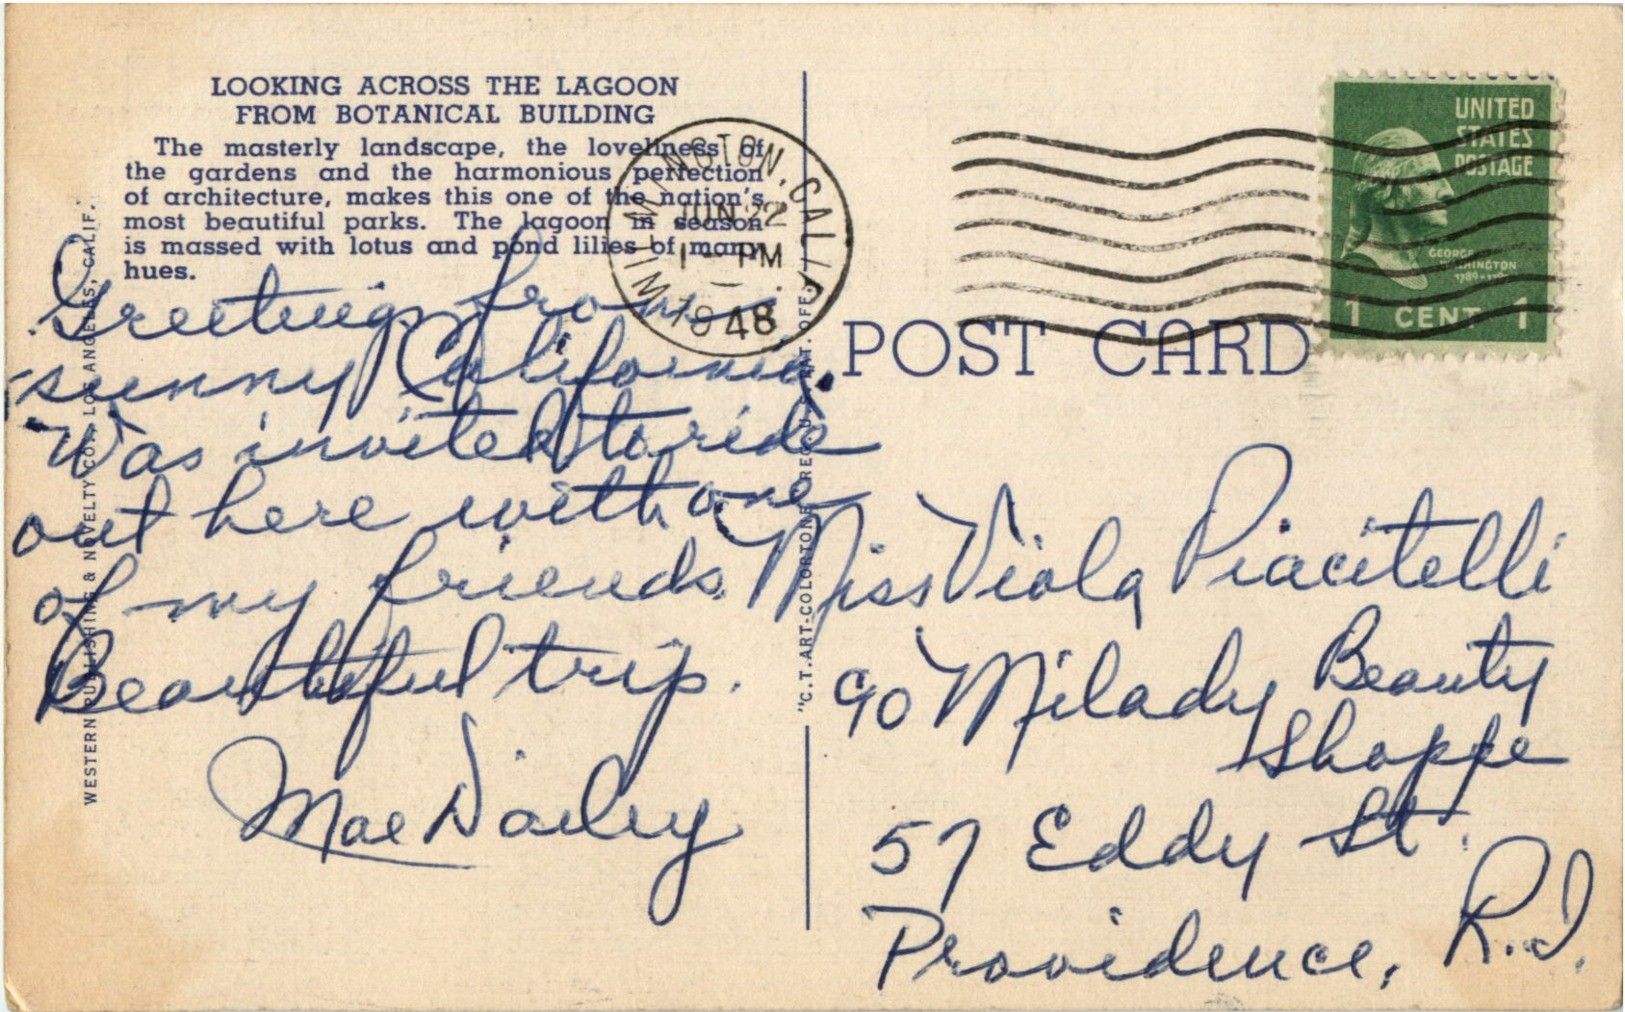 LOOKING ACROSS THE LAGOON
FROM BOTANICAL BUILDING
The masterly landscape, the loveliness of
the gardens and the harmonious perfection
of architecture, makes this one of the nation's
most beautiful parks. The lagoon in season
is massed with lotus and pond lilies of many
hues.
Greetings from
sunny California.
Was invited to ride
out here with one
of my friends.
Beautiful trip.
Mae Dailey
WESTERN PUBLISHING & NOVELTY CO., LOS ANGELES, CALIF.
"C.T. ART-COLORTONE" REG. U.S. PAT. OFF.
WILMINGTON, CALIF.
JUN 22
1 - PM
1948
UNITED
STATES
POSTAGE
GEORGE
WASHINGTON
1789-1797
1 CENT 1
POST CARD
Miss Viola Piacitelli
℅ Milady Beauty
Shoppe
57 Eddy St.
Providence, R.I.